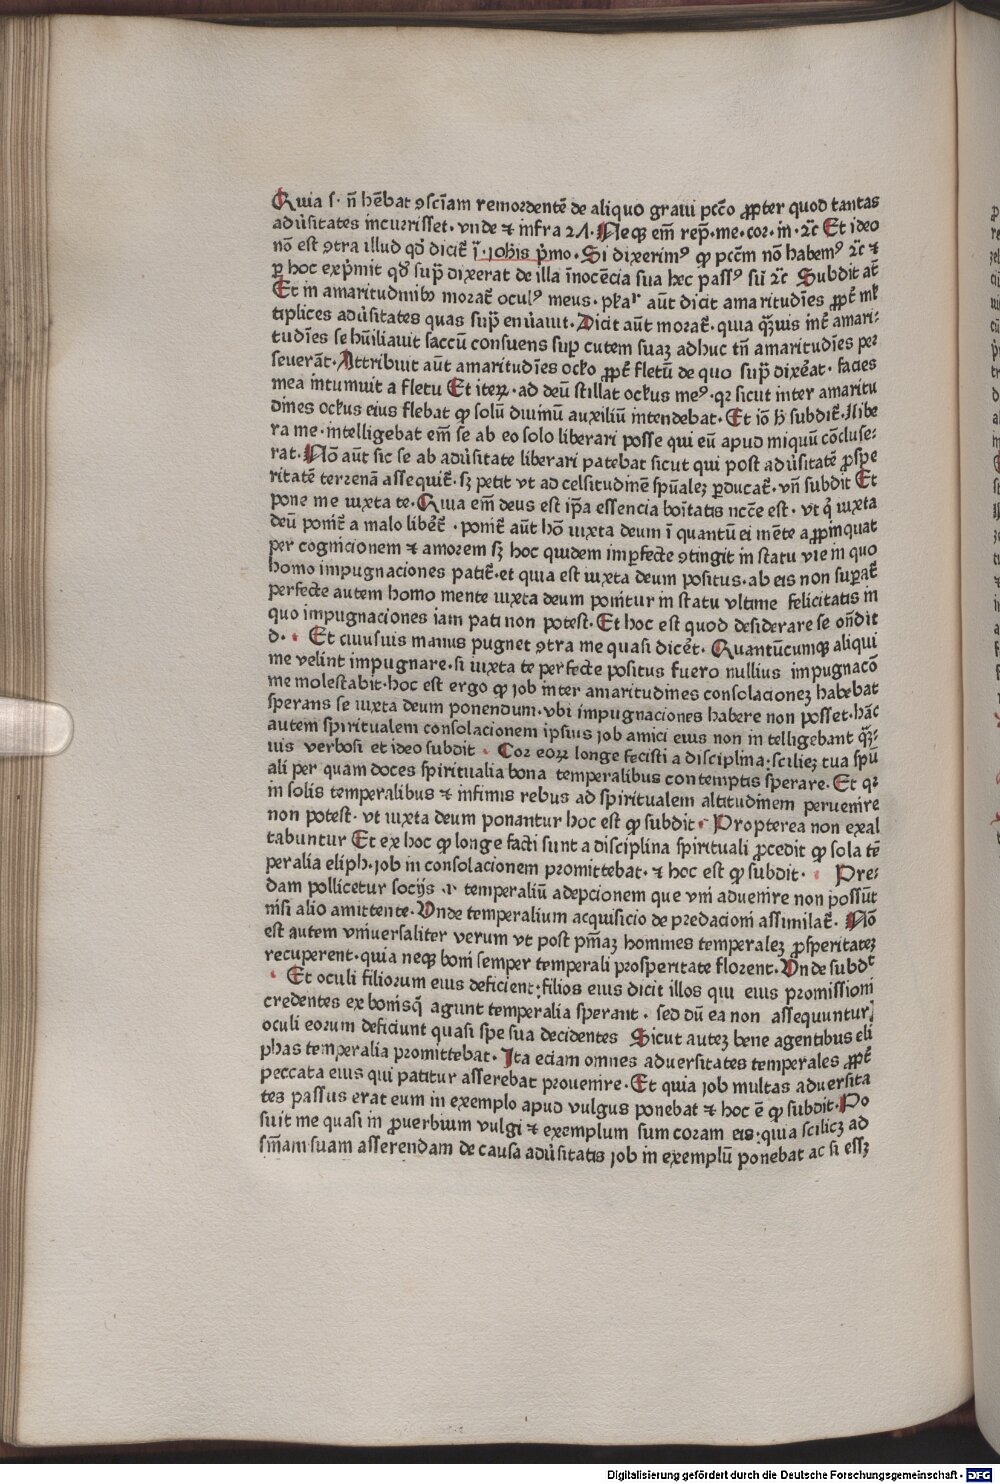 Quia s· n̄ hēbat ꝯsciam remordentē de aliquo graui pccō ꝓpter quod tantas
aduˀsitates incurrisset· vnde ⁊ infra 21· Neqꝫ em̄ rep̄·me·cor·in·⁊c̄ Et ideo
nō est ꝯtra illud qd̄ dicit̄ ī·ioh̄is pˀmo· Si dixerimꝰ ꝙ pccm̄ nō habemꝰ ⁊c̄ ⁊
ꝑ hoc expˀmit qd̄ sup̄ dixerat de illa īnocēcia sua hec passꝰ sū ⁊c̄ Subdit at̄
Et in amaritudinibꝰ morat̄ oculꝰ meus· aūt dicit amaritudīes ꝓpt̄
tiplices aduˀsitates quas sup̄ Dicit aūt morat̄· quia qˀꝫuis int̄ amari-
tudīes se hūiliauit saccū consuens suꝑ cutem suaꝫ adhuc tn̄ amaritudīes per
seuerāt· Attribuit aūt amaritudīes oc̄lo ꝓpt̄ fletū de quo sup̄ dixˀat· facies
mea intumuit a fletu Et iteꝝ· ad deū stillat oc̄lus meꝰ· qꝛ sicut inter amaritu
dines oc̄lus eius flebat ꝙ solū diuinū auxiliū intendebat· Et iō h̄ subdit̄· libe
ra me· intelligebat em̄ se ab eo solo liberari posse qui eū apud miquū cōcluse-
rat· Nō aūt sic se ab aduˀsitate liberari patebat sicut qui post aduˀsitatē ꝓspe
ritatē terrenā assequit̄· sꝫ petit vt ad celsitudinē spūaleꝫ ꝑducat̄· vn̄ subdit Et
pone me iuxta te· Quia em̄ deus est ip̄a essencia boītatis ncc̄e est· vt qˀ iuxta
deū ponit̄ a malo libēt̄ · ponit̄ aūt hō iuxta deum ī quantū ei mēte aꝓpinquat
per cognicionem ⁊ amorem sꝫ hoc quidem imꝑfecte ꝯtingit in statu vie in quo
homo impugnaciones patit̄·et quia est iuxta deum positus· ab eis non suꝑat̄
perfecte autem homo mente iuxta deum ponitur in statu vltime felicitatis in
quo impugnaciones iam pati non potest· Et hoc est quod desiderare se ondit
d· · Et cuiusuis manus pugnet ꝯtra me quasi dicˀet· Quantūcumqꝫ aliqui
me velint impugnare· si iuxta te perfecte positus fuero nullius impugnacō
me molestabit· hoc est ergo ꝙ iob inter amaritudines consolacioneꝫ habebat
sperans se iuxta deum ponendum· vbi impugnaciones habere non posset· hāc
autem spiritualem consolacionem ipsius iob amici eius non in telligebant qˀꝫ-
uis verbosi et ideo subdit · Cor eoꝝ longe fecisti a disciplina: scilieꝫ tua spū
ali per quam doces spiritualia bona temperalibus contemptis sperare· Et qꝛ
in solis temperalibus ⁊ infimis rebus ad spiritualem altitudinem peruenire
non potest· vt iuxta deum ponantur hoc est ꝙ subdit · Propterea non exal
tabuntur Et ex hoc ꝙ longe facti sunt a disciplina spirituali ꝓcedit ꝙ sola tē
peralia eliph· iob in consolacionem promittebat· ⁊ hoc est ꝙ subdit· · Pre-
dam pollicetur socijs ·i· temperaliū adepcionem que vni aduenire non possūt
nisi alio amittente· Vnde temperalium acquisicio de predacioni assimilat̄· Nō
est autem vniuersaliter verum vt post pn̄iaꝫ hommes temperaleꝫ ꝓsperitateꝫ
recuperent· quia neqꝫ boni semper temperali prosperitate florent· Vnde subdᵗ
· Et oculi filiorum eius deficient: filios eius dicit illos qui eius promissioni
credentes ex bonisqˀ agunt temperalia sperant · sed dū ea non assequuntur
oculi eorum deficiunt quasi spe sua decidentes Sicut auteꝫ bene agentibus eli
phas temperalia promittebat· Ita eciam omnes aduersitates temperales ꝓpt̄
peccata eius qui patitur asserebat prouenire· Et quia iob multas aduersita
tes passus erat eum in exemplo apud vulgus ponebat ⁊ hoc ē ꝙ subdit· Po
suit me quasi in ꝓuerbium vulgi ⁊ exemplum sum coram eis: quia scilicꝫ ad
sn̄iam suam asserendam de causa aduˀsitatis iob in exemplū ponebat ac si essꝫ
Digitalisierung gefördert durch die Deutsche Forschungsgemeinschaft · DFG